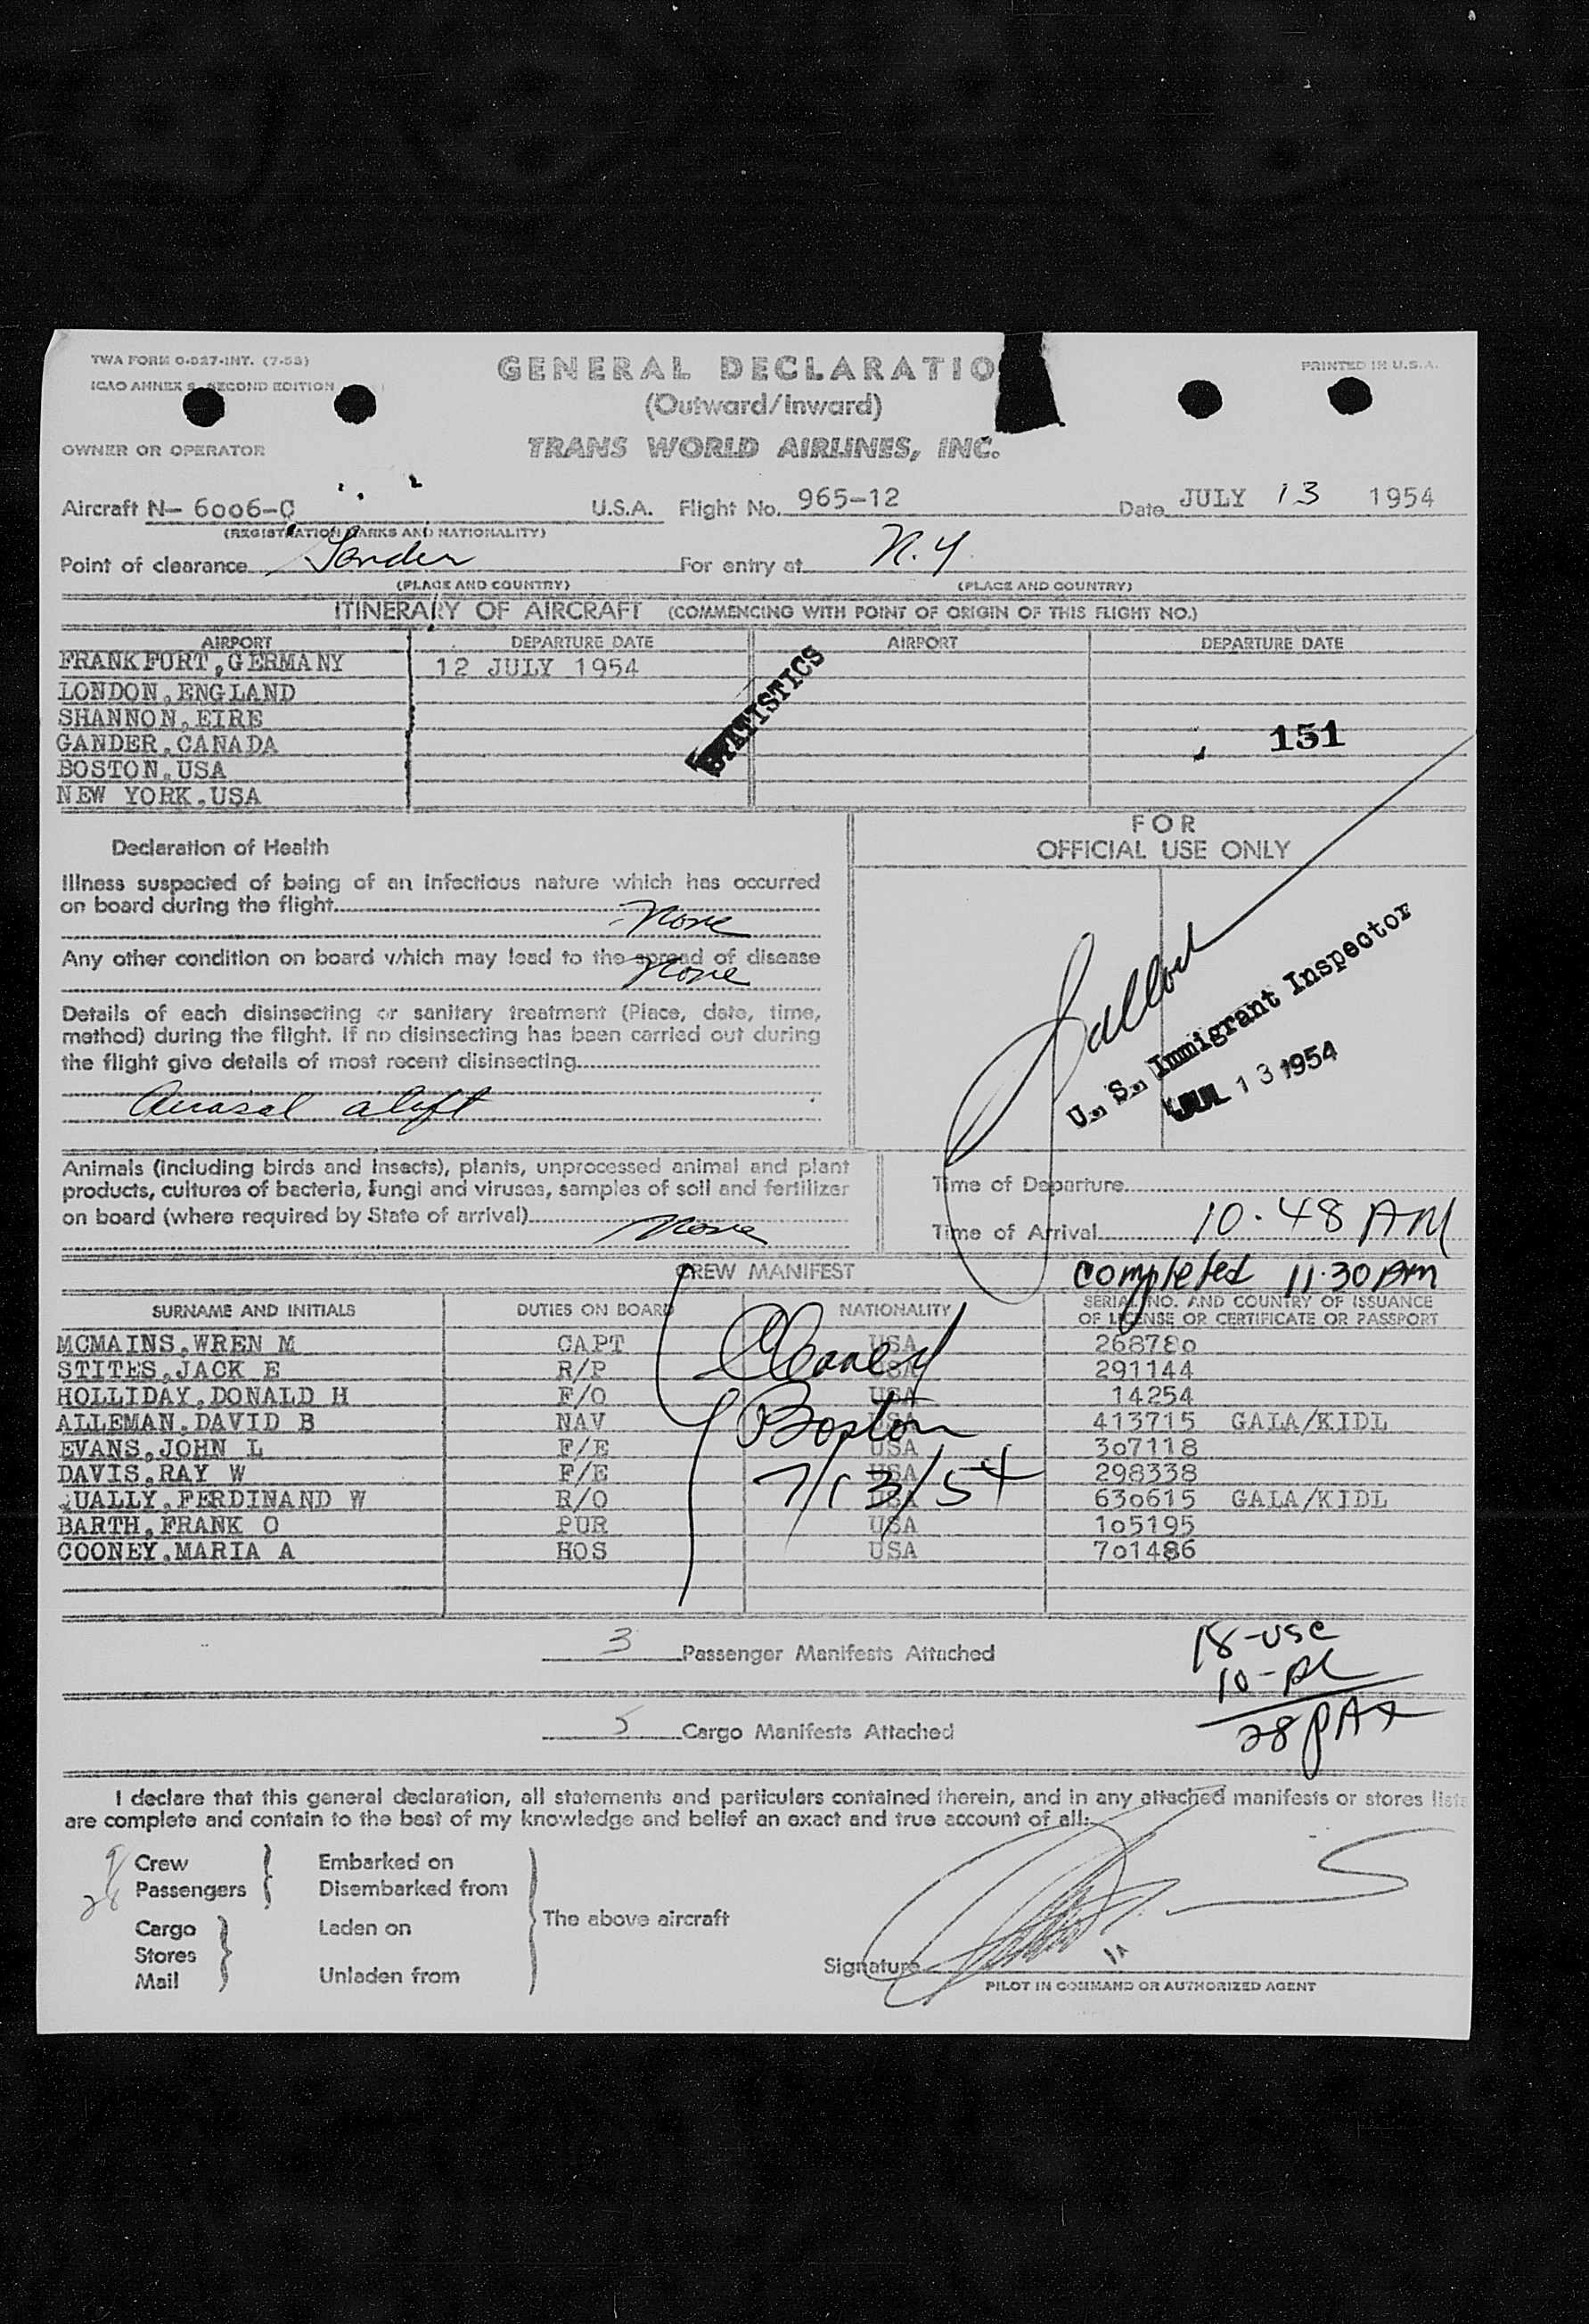 TWA FORM O-527-INT. (7-53)
GENERAL DECLARATIO
PRINTED IN U.S.A.
ICAO ANNEX 9, SECOND EDITION
(Outward/Inward)
OWNER OR OPERATOR
TRANS WORLD AIRLINES, INC.
Aircraft N- 6006-C U.S.A. Flight No. 965-12 Date JULY 13 1954
(REGISTRATION MARKS AND NATIONALITY)
Point of clearance Gander For entry at N.Y.
(PLACE AND COUNTRY) (PLACE AND COUNTRY)
ITINERARY OF AIRCRAFT (COMMENCING WITH POINT OF ORIGIN OF THIS FLIGHT NO.)
AIRPORT DEPARTURE DATE AIRPORT DEPARTURE DATE
FRANKFURT,GERMANY 12 JULY 1954
LONDON,ENGLAND
SHANNON,EIRE
GANDER,CANADA
BOSTON,USA
NEW YORK,USA
STATISTICS
151
Declaration of Health
FOR
OFFICIAL USE ONLY
Illness suspected of being of an infectious nature which has occurred
on board during the flight
None
Any other condition on board which may lead to the spread of disease
None
Details of each disinsecting or sanitary treatment (Place, date, time,
method) during the flight. If no disinsecting has been carried out during
the flight give details of most recent disinsecting
Airasal aloft
U. S. Immigrant Inspector
JUL 13 1954
Animals (including birds and insects), plants, unprocessed animal and plant
products, cultures of bacteria, fungi and viruses, samples of soil and fertilizer
on board (where required by State of arrival) None
Time of Departure
Time of Arrival 10.48 AM
completed 11.30 AM
CREW MANIFEST
SURNAME AND INITIALS DUTIES ON BOARD NATIONALITY SERIAL NO. AND COUNTRY OF ISSUANCE
OF LICENSE OR CERTIFICATE OR PASSPORT
MCMAINS,WREN M CAPT USA 268780
STITES,JACK E R/P USA 291144
HOLLIDAY,DONALD H F/O USA 14254
ALLEMAN,DAVID B NAV USA 413715 GALA/KIDL
EVANS,JOHN L F/E USA 307118
DAVIS,RAY W F/E USA 298338
QUALLY,FERDINAND W R/O USA 630615 GALA/KIDL
BARTH,FRANK O PUR USA 105195
COONEY,MARIA A HOS USA 701486
Cleared
Boston
7/13/54
3 Passenger Manifests Attached
18-USC
10-AL
28 PAX
5 Cargo Manifests Attached
I declare that this general declaration, all statements and particulars contained therein, and in any attached manifests or stores lists
are complete and contain to the best of my knowledge and belief an exact and true account of all:
9 Crew Embarked on
28 Passengers Disembarked from
The above aircraft
Cargo Laden on
Stores
Mail Unladen from
Signature
PILOT IN COMMAND OR AUTHORIZED AGENT